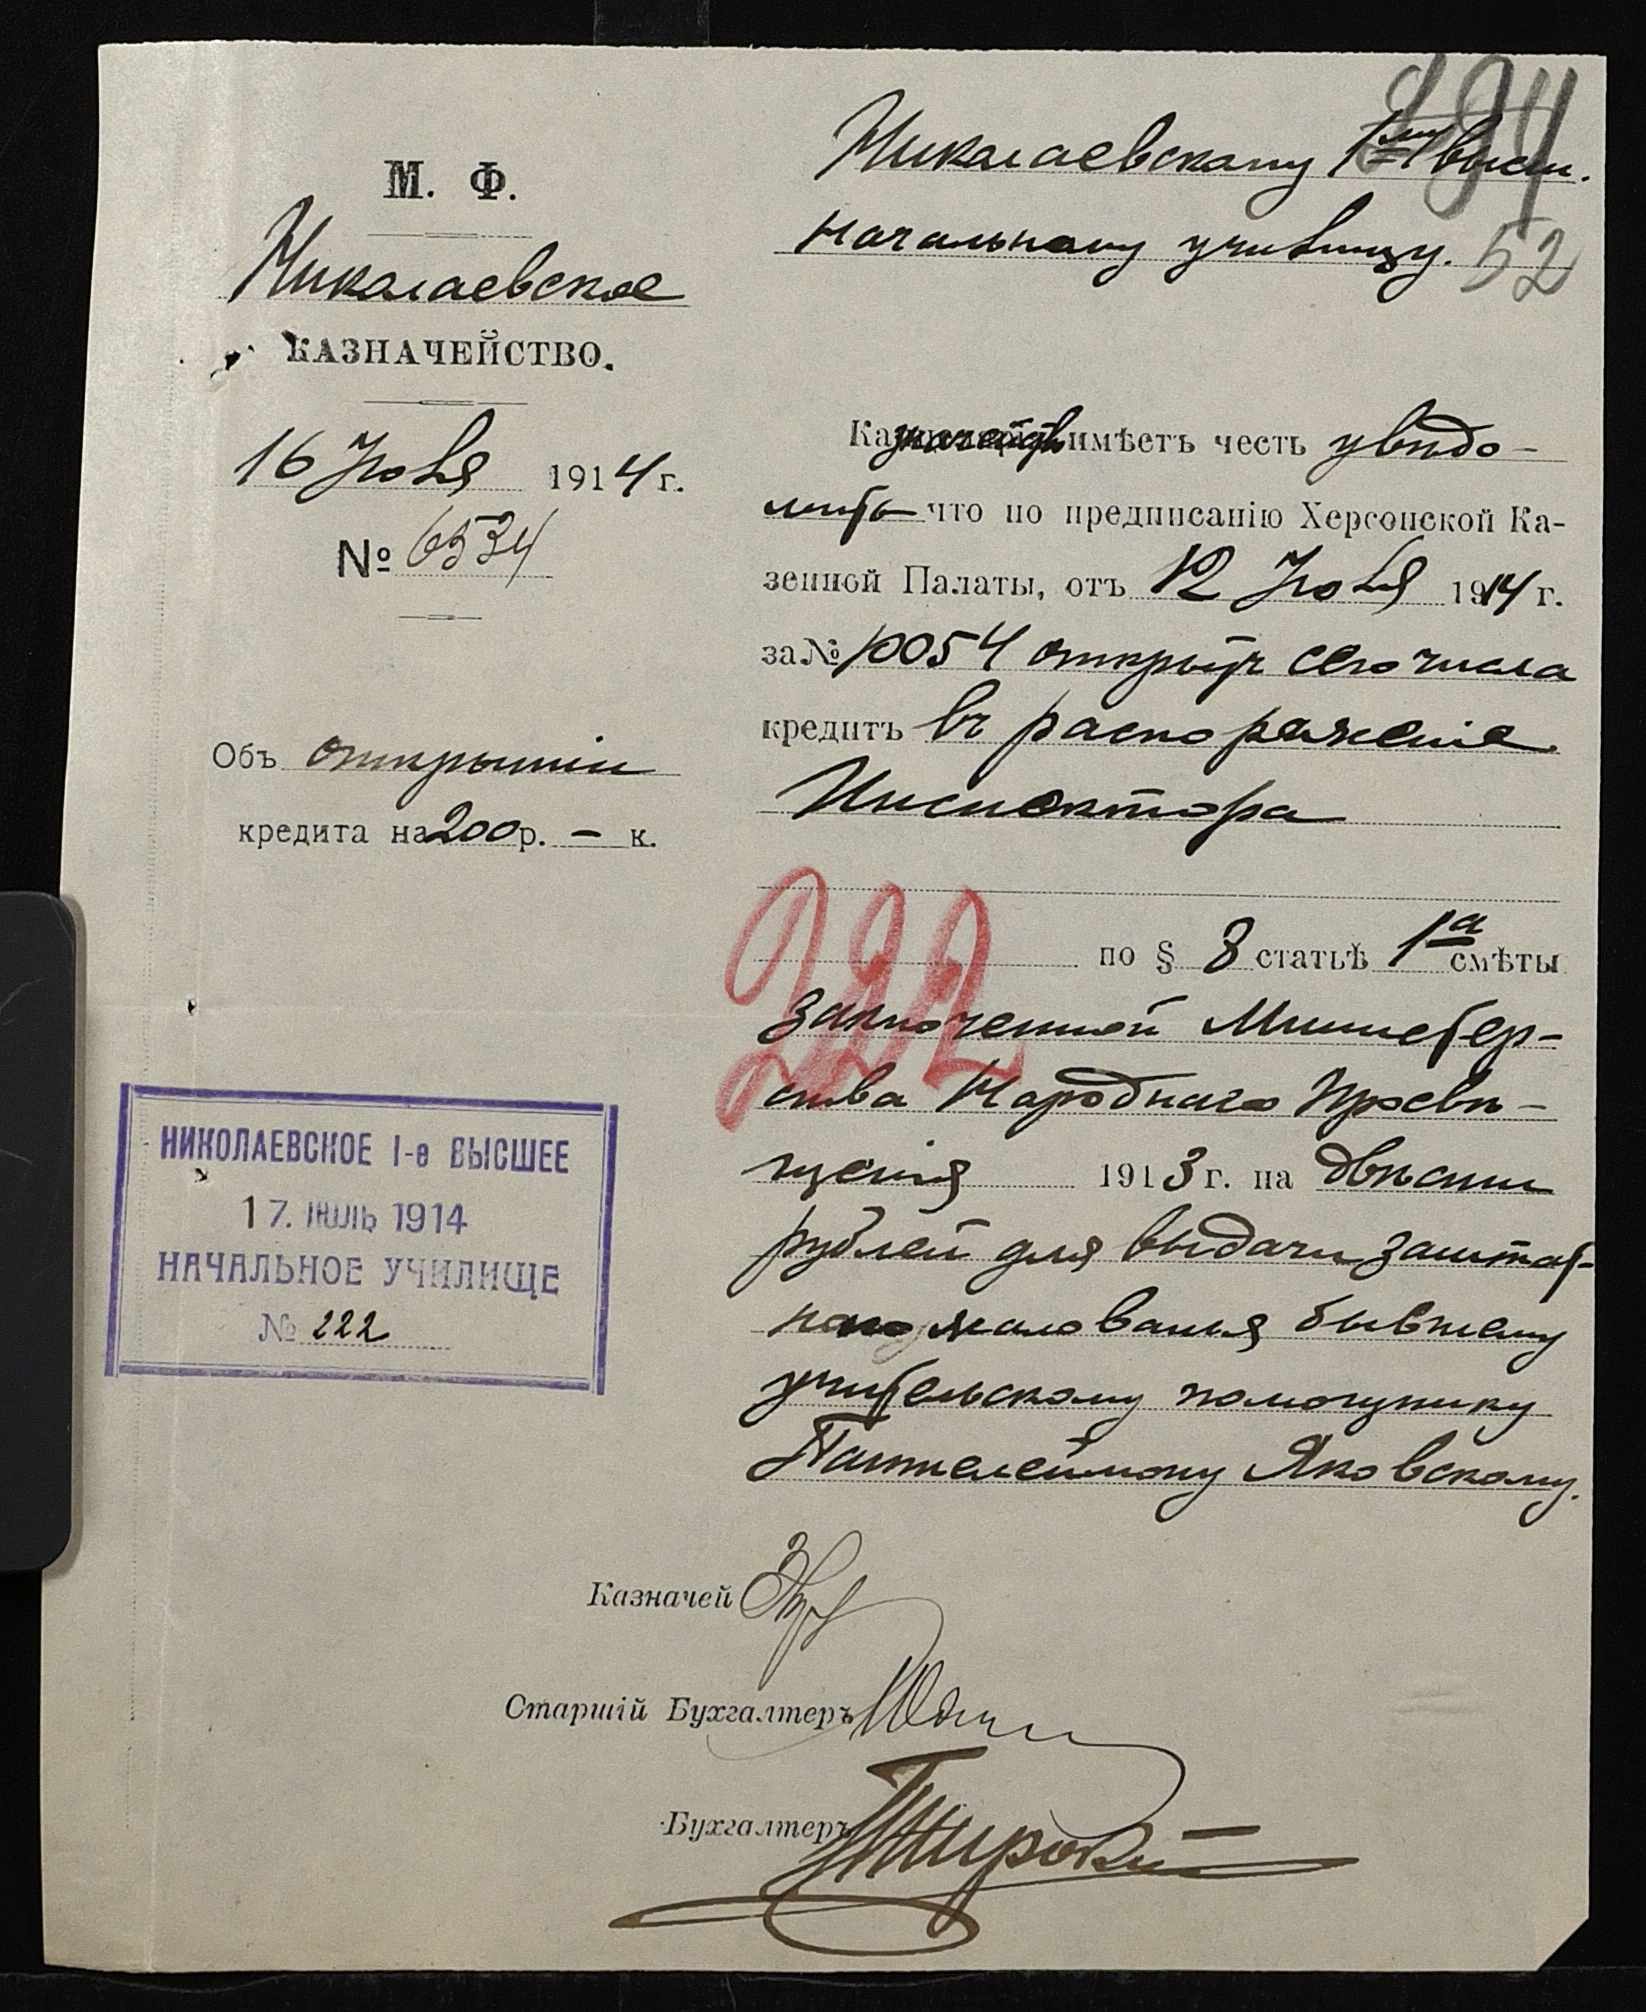 М. Ф.
Николаевское
КАЗНАЧЕЙСТВО.
16 Июля 1914 г.
№ 6534
Объ открытіи
кредита на 200 р. – к.
НИКОЛАЕВСКОЕ 1-е ВЫСШЕЕ
17. ІЮЛЬ 1914
НАЧАЛЬНОЕ УЧИЛИЩЕ
№ 222
Николаевскому 1му высш.
начальному училищу.
52
Казначейство имѣетъ честь увѣдо-
мить что по предписанію Херсонской Ка-
зенной Палаты, отъ 12 Июля 1914 г.
за № 10054 открытъ сего числа
кредитъ въ распоряженіе
Инспектора
222
по § 8 статьѣ 1а смѣты
заключенной Министер-
ства Народнаго Просвѣ-
щенія 1913 г. на двѣсти
рублей для выдачи заштат-
наго жалованья бывшему
учительскому помощнику
Пантелеймону Яковскому.
Казначей
Старшій Бухгалтеръ
Бухгалтеръ